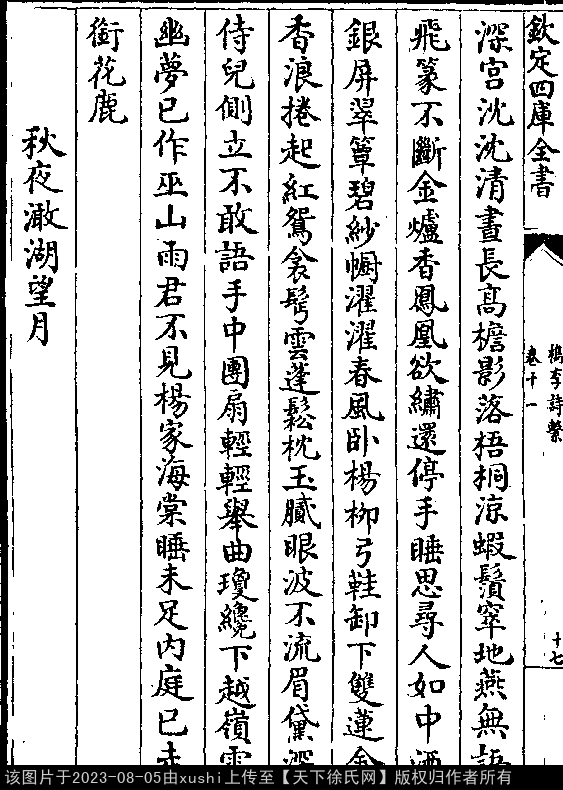 欽定四庫全書
檇李詩繫
卷十一
十七
深宫沈沈清晝長高檐影落梧桐涼蝦鬚窣地燕無語
飛篆不斷金爐香鳳凰欲繡還停手睡思尋人如中酒
銀屏翠簟碧紗㡡濯濯春風卧楊柳弓鞋卸下雙蓮金
香浪捲起紅鴛衾髩雲蓬鬆枕玉膩眼波不流眉黛深
侍兒側立不敢語手中團扇輕輕舉曲瓊纔下越嶺雲
幽夢已作巫山雨君不見楊家海棠睡未足内庭已走
銜花鹿
秋夜澉湖望月
该图片于2023-08-05由xushi上传至【天下徐氏网】版权归作者所有